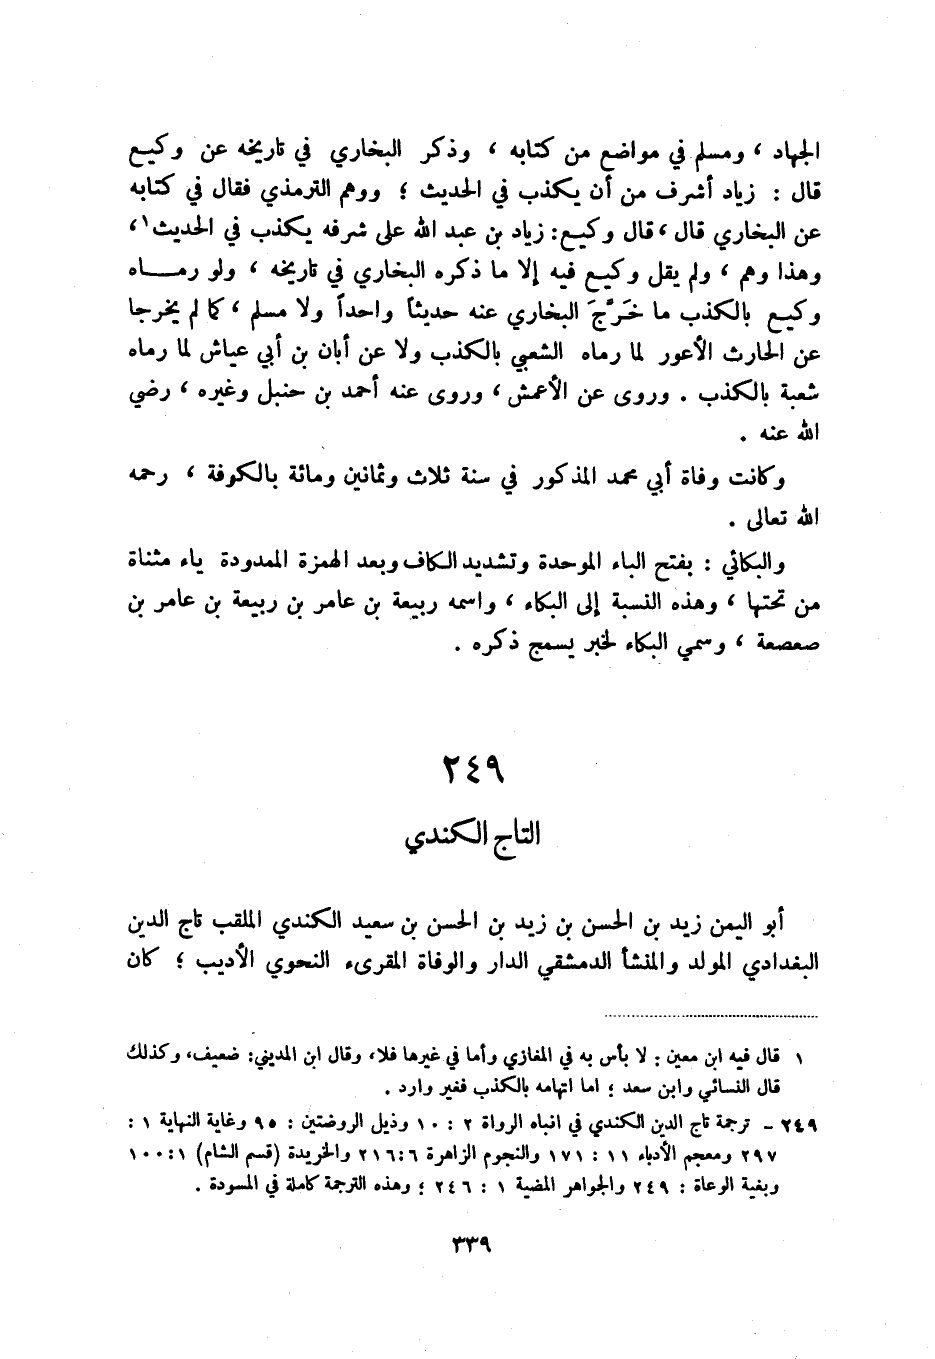 الجهاد ، ومسلم في مواضع من كتابه ، وذكر البخاري في تاريخه عن وكيع
قال : زياد أشرف من أن يكذب في الحديث ؛ ووهم الترمذي فقال في كتابه
عن البخاري قال ، قال وكيع : زياد بن عبد الله على شرفه يكذب في الحديث١،
وهذا وهم ، ولم يقل وكيع فيه إلا ما ذكره البخاري في تاريخه ، ولو رمـــاه
وكيع بالكذب ما خَرَّجَ البخاري عنه حديثاً واحداً ولا مسلم ، كما لم يخرجا
عن الحارث الأعور لما رماه الشعبي بالكذب ولا عن أبان بن أبي عياش لما رماه
شعبة بالكذب . وروى عن الأعمش ، وروى عنه أحمد بن حنبل وغيره ، رضي
الله عنه .
وكانت وفاة أبي محمد المذكور في سنة ثلاث وثمانين ومائة بالكوفة ، رحمه
الله تعالى .
والبكائي : بفتح الباء الموحدة وتشديد الكاف وبعد الهمزة الممدودة ياء مثناة
من تحتها ، وهذه النسبة إلى البكاء ، واسمه ربيعة بن عامر بن ربيعة بن عامر بن
صعصعة ، وسمي البكاء لخبر يسمج ذكره .
٢٤٩
التاج الكندي
أبو اليمن زيد بن الحسن بن زيد بن الحسن بن سعيد الكندي الملقب تاج الدين
البغدادي المولد والمنشأ الدمشقي الدار والوفاة المقرىء النحوي الأديب ؛ كان
١ قال فيه ابن معين : لا بأس به في المغازي وأما في غيرها فلا، وقال ابن المديني: ضعيف، وكذلك
قال النسائي وابن سعد ؛ اما اتهامه بالكذب فغير وارد .
٢٤٩ - ترجمة تاج الدين الكندي في انباه الرواة ٢ : ١٠ وذيل الروضتين : ٩٥ وغاية النهاية ١ :
٢٩٧ ومعجم الأدباء ١١ : ١٧١ والنجوم الزاهرة ٦:٢١٦ والخريدة (قسم الشام) ١:١٠٠
وبغية الوعاة : ٢٤٩ والجواهر المضية ١ : ٢٤٦ ؛ وهذه الترجمة كاملة في المسودة .
٣٣٩